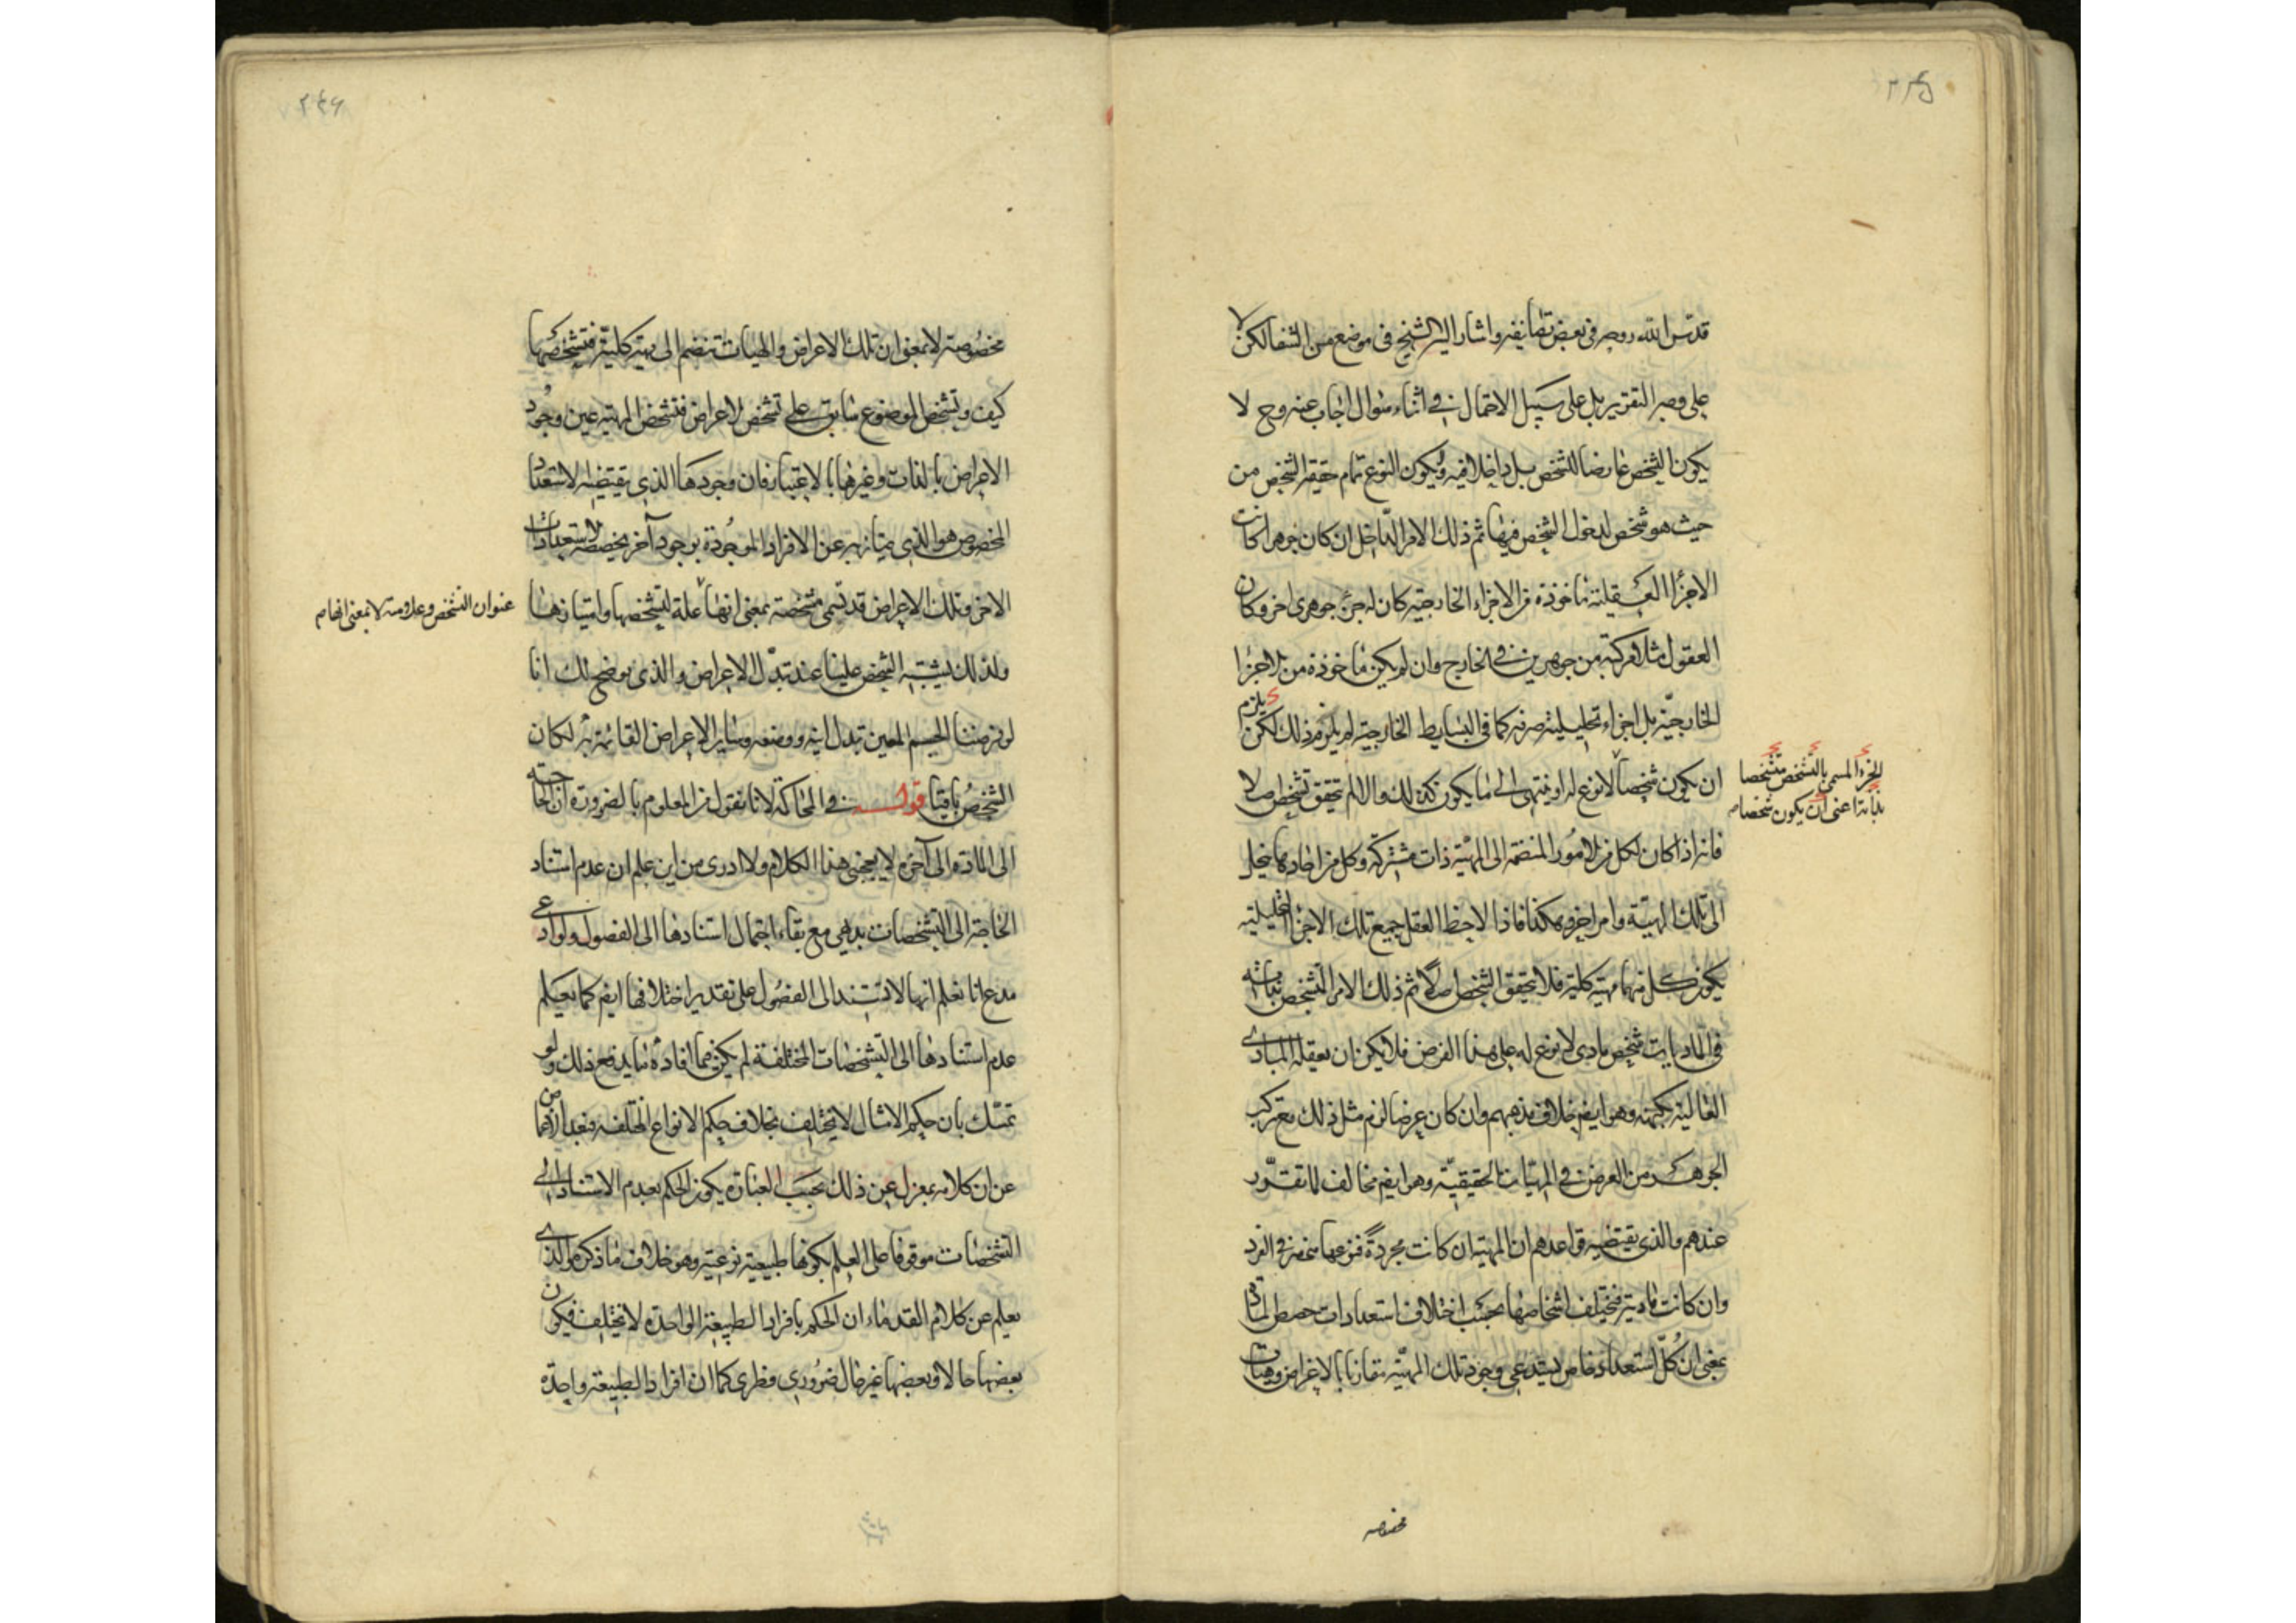 ٢٤٥
قدس الله روحه فى بعض تصانيفه واشار اليه الشيخ فى موضع من الشفا لكن لا
على وجه التقرير بل على سبيل الاحتمال فى اثناء سؤال اجاب عنه وح لا
يكون الشخص عارضا للشخص بل داخلا فيه ويكون النوع تمام حقيقة الشخص من
حيث هو شخص لدخول الشخص فيها ثم ذلك الامر الداخل ان كان جوهرا كانت
الاجزاء العقلية ماخوذة من الاجزاء الخارجية كان له جزء جوهرى اخر وكان
العقول مثلا مركبة من جوهرين فى الخارج وان لم يكن ماخوذة من الاجزا
الخارجية بل اجزاء تحليلية صرفة كما فى البسايط الخارجية لم يلزم ذلك لكن يلزم
ان يكون شخصا لا نوع له او ينتهى الى ما يكون كذلك والا لم تحقق تشخص اصلا
الجزء المسمى بالتشخص متشخصا
بذاته اعنى ان يكون شخصا
فانه اذا كان لكل من الامور المنضمة الى المهية ذات مشتركة وكل من احادها ينحل
الى تلك المهية وامر اخر وهكذا فاذا لاحظ العقل جميع تلك الاجزا التحليلية
يكون كل منها مهية كلية فلا يتحقق الشخص اصلا ثم ذلك الامر المتشخص بذاته
فى الماديات شخص مادى لا نوع له على هذا الفرض فلا يمكن ان يعقله المبادى
العالية بكنهه وهو ايضا خلاف مذهبهم وان كان عرضا لزم مثل ذلك مع تركب
الجوهر من العرض فى المهيات الحقيقية وهو ايضا مخالف لما تقرر
عندهم والذى يقتضيه قواعدهم ان المهية ان كانت مجردة فنوعها منحصر فى الفرد
وان كانت مادية فتختلف اشخاصها بحسب اختلاف استعدادات حصص المادة
بمعنى ان كل استعداد خاص يستدعى وجود تلك المهية مقارنا بالاعراض وهيئات
مخصوصة
٢٤٦
مخصوصة لا بمعنى ان تلك الاعراض والهيات تنضم الى مهية كلية فتشخصها
كيف وتشخص الموضوع سابق على تشخص الاعراض فتشخص المهية عين وجود
الاعراض بالذات وغيرها بالاعتبار فان وجودها الذى يقتضيه الاستعداد
المخصوص هو الذى يمتاز به عن الافراد الموجودة بوجود آخر يخصصه الاستعدادات
الاخر وتلك الاعراض قد تسمى مشخصة بمعنى انها علة لتشخصها وامتيازها
عنوان التشخص وعلامته لا بمعنى انها
ولذلك يشتبه الشخص علينا عند تبدل الاعراض والذى يوضح لك انا
لو فرضنا الجسم المعين تبدل اينه ووضعه وساير الاعراض القائمة به لكان
الشخص باقيا قوله فى المحاكمة لانا نقول من المعلوم بالضرورة ان الحاجة
الى المادة الى آخره لا يعجبنى هذا الكلام ولا ادرى من اين علم ان عدم استناد
الخاصة الى التشخصات بديهى مع بقاء احتمال استنادها الى الفصول ولو ادعى
مدع انا نعلم انها لا تستند الى الفصول على تقدير اختلافها ايضا كما نعلم
عدم استنادها الى التشخصات المختلفة لم يكن فيما افاده ما يدفع ذلك ولو
تمسك بان حكم الامثال لا يختلف بخلاف حكم الانواع المختلفة فبعد
عن ان كلامه بمعزل عن ذلك بحسب العبارة يكون الحكم بعدم الاستناد الى
التشخصات موقوفا على العلم بكونها طبيعية نوعية وهو خلاف ما ذكره والذى
يعلم عن كلام القدماء ان الحكم بافراد الطبيعة الواحدة لا تختلف فيكون
بعضها حالا وبعضها غير حال ضرورى وفطرى كما ان افراد الطبيعة واحدة